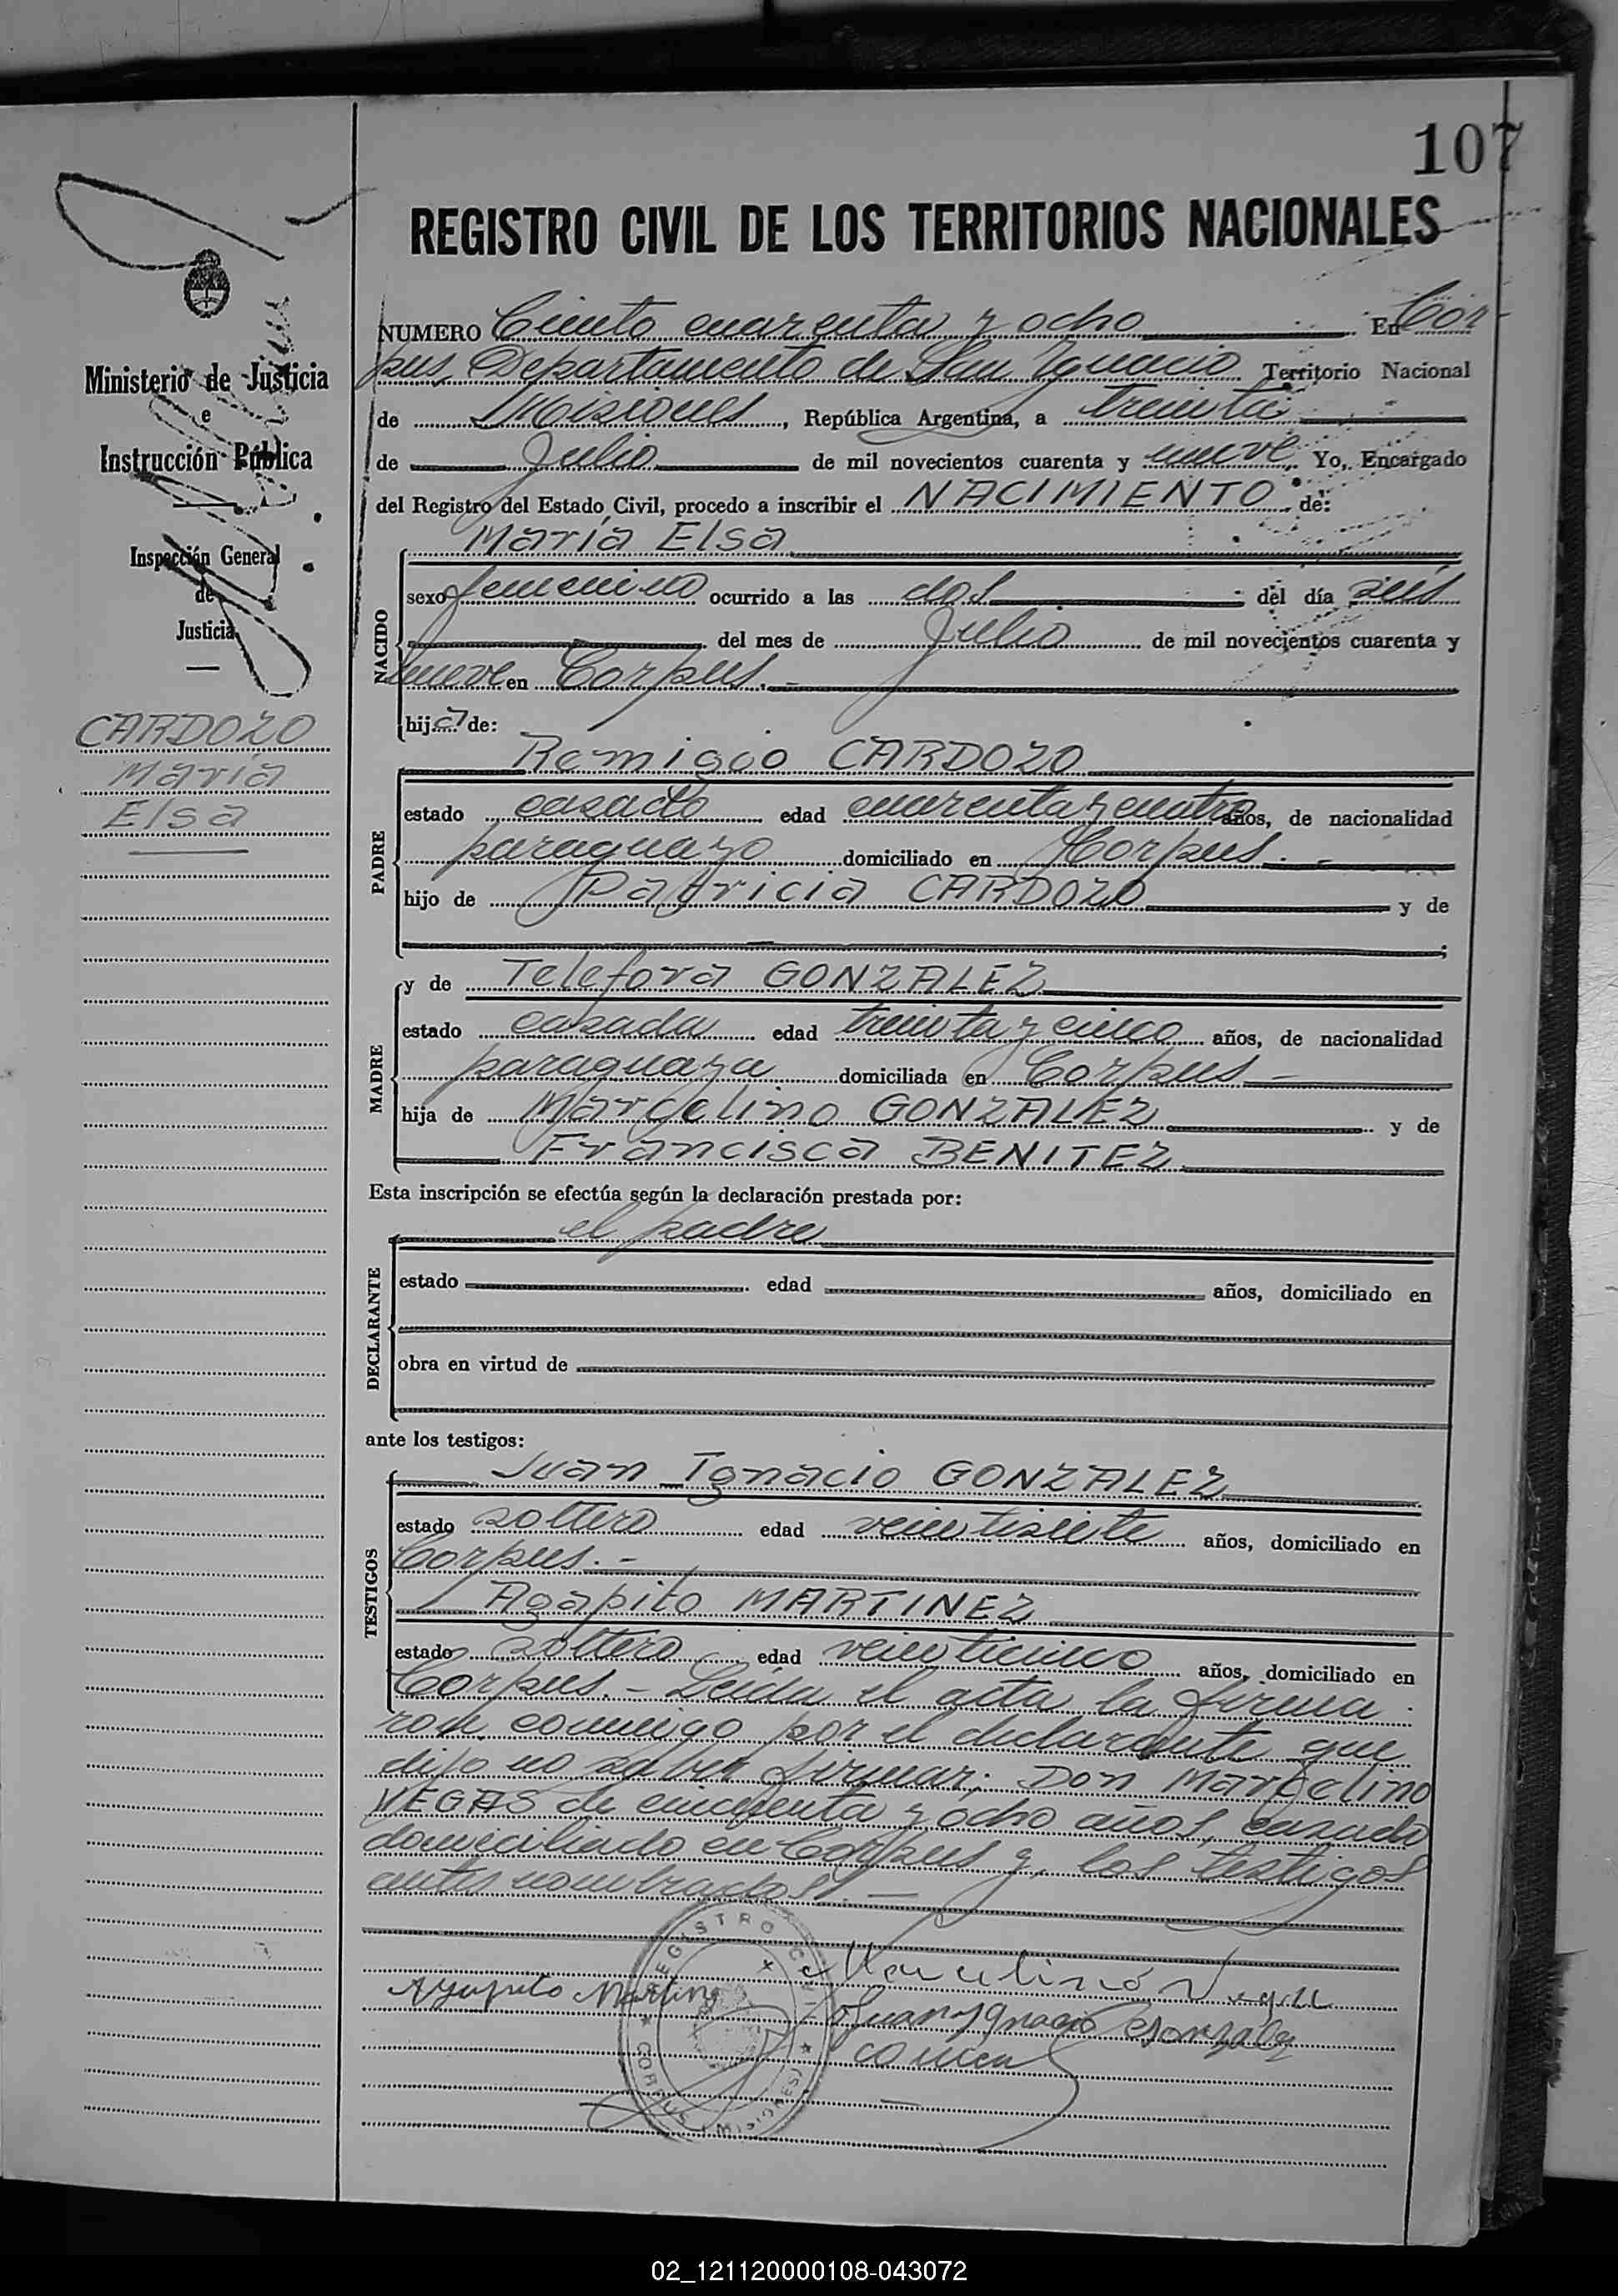 107
REGISTRO CIVIL DE LOS TERRITORIOS NACIONALES
Ministerio de Justicia
e
Instrucción Pública
Inspección General
de
Justicia
CARDOZO
María
Elsa
NUMERO Ciento cuarenta y ocho En Cor-
pus, Departamento de San Ygnacio Territorio Nacional
de Misiones, República Argentina, a treinta
de Julio de mil novecientos cuarenta y nueve. Yo, Encargado
del Registro del Estado Civil, procedo a inscribir el NACIMIENTO de:
María Elsa
NACIDO
sexo femenino ocurrido a las dos del día seis
del mes de Julio de mil novecientos cuarenta y
nueve en Corpus.-
hija de:
Remigio CARDOZO
PADRE
estado casado edad cuarenta y cuatro años, de nacionalidad
paraguayo domiciliado en Corpus.-
hijo de Patricia CARDOZO y de
;
MADRE
y de Telefora GONZALEZ
estado casada edad treinta y cinco años, de nacionalidad
paraguaya domiciliada en Corpus-
hija de Marcelino GONZALEZ y de
Francisca BENITEZ
Esta inscripción se efectúa según la declaración prestada por:
el padre
DECLARANTE
estado edad años, domiciliado en
obra en virtud de
ante los testigos:
TESTIGOS
Juan Ignacio GONZALEZ
estado soltero edad veintisiete años, domiciliado en
Corpus.-
Agapito MARTINEZ
estado soltero edad veinticinco años, domiciliado en
Corpus.- Leida el acta la firma
ron conmigo por el declarante que
dijo no saber firmar; Don Marcelino
VEGAS de cincuenta y ocho años, casado
domiciliado en Corpus y, los testigos
antes nombrados.-
REGISTRO CIVIL
CORPUS (MISIONES)
Marcelino Vega
Agapito Martinez
Juan Ygnacio Gonzalez
02_121120000108-043072